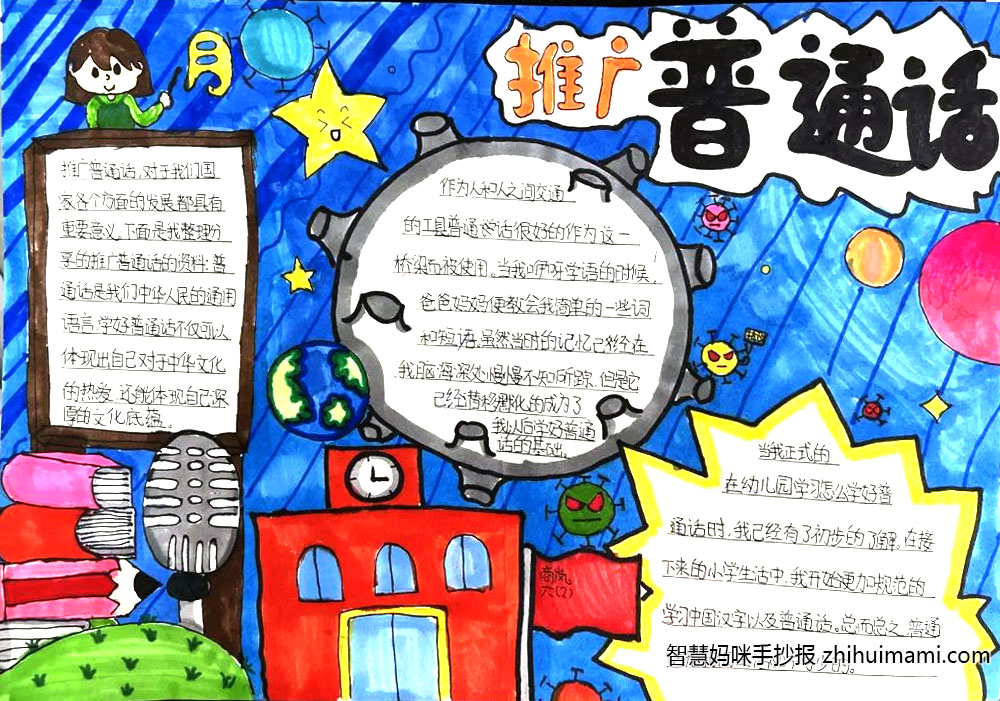 推广普通话
月
推广普通话,对于我们国
家各个方面的发展都具有
重要意义。下面是我整理分
享的推广普通话的资料:普
通话是我们中华人民的通用
语言,学好普通话不仅可以
体现出自己对于中华文化
的热爱,还能体现自己深
厚的文化底蕴。
作为人和人之间交通
的工具普通话很好的作为这一
桥梁而被使用。当我咿呀学语的时候,
爸爸妈妈便教会我简单的一些词
和短语,虽然当时的记忆已经在
我脑海深处慢慢不知所踪,但是它
已经潜移默化的成为了
我以后学好普通
话的基础。
当我正式的
在幼儿园学习怎么学好普
通话时,我已经有了初步的了解。在接
下来的小学生活中,我开始更加规范的
学习中国汉字以及普通话。总而总之,普通
少的。
六(2)
智慧妈咪手抄报 zhihuimami.com